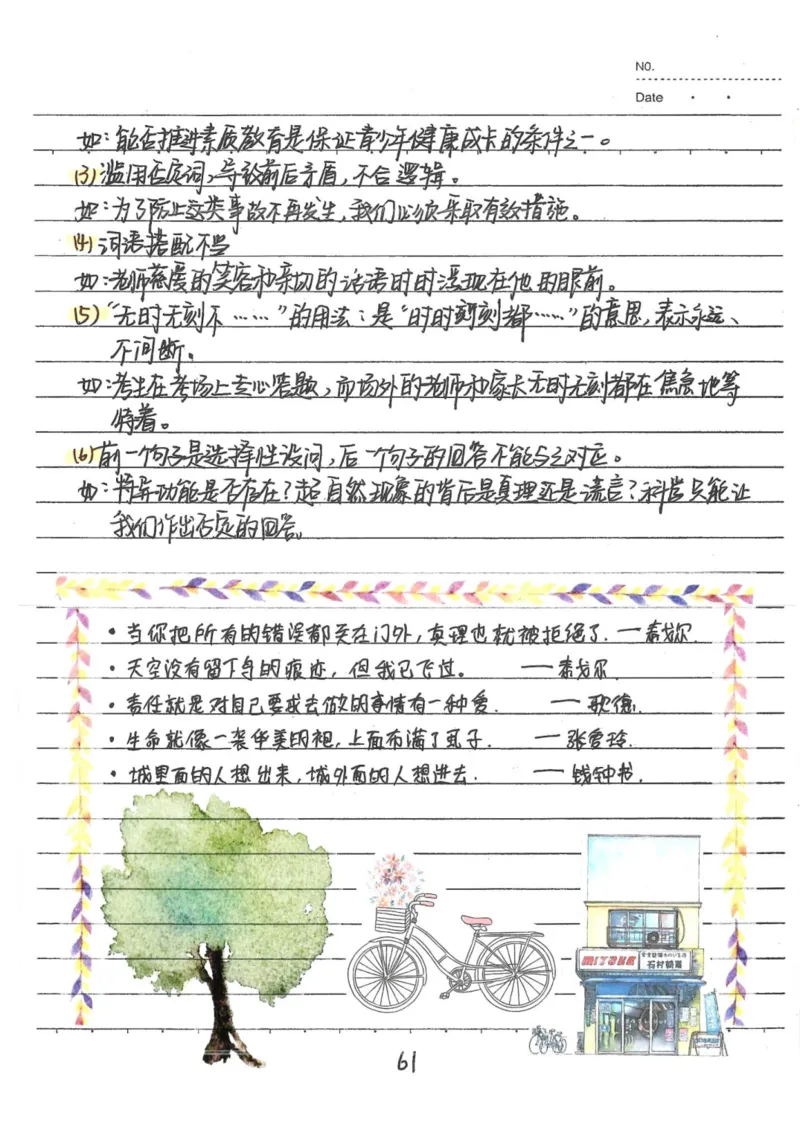 NO.
Date
如：能否推进素质教育是保证青少年健康成长的条件之一。
(3)滥用否定词，导致前后矛盾，不合逻辑。
如：为了防止这类事故不再发生，我们必须采取有效措施。
(4)词语搭配不当
如：老师慈爱的笑容和亲切的话语时时浮现在他的眼前。
(5)“无时无刻不……”的用法：是“时时刻刻都……”的意思，表示永远、
不间断。
如：考生在考场上专心答题，而场外的老师和家长无时无刻都在焦急地等
待着。
(6)前一个句子是选择性设问，后一个句子的回答不能与之对应。
如：特异功能是否存在？超自然现象的背后是真理还是谎言？科学只能让
我们作出否定的回答。
·当你把所有的错误都关在门外，真理也就被拒绝了. —泰戈尔.
·天空没有留下鸟的痕迹，但我已飞过。 —泰戈尔.
·责任就是对自己要求去做的事情有一种爱. —歌德.
·生命就像一袭华美的袍，上面布满了虱子. —张爱玲.
·城里面的人想出来，城外面的人想进去. —钱钟书.
MIYAKE
石村頓湯
61